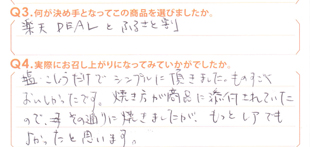 Q3.何が決め手となってこの商品を選びましたか。
楽天 DEAL と ふるさと割
Q4.実際にお召し上がりになってみていかがでしたか。
塩、こしょうだけで シンプルに頂きました。ものすごく
おいしかったです。焼き方が商品に添付されていた
ので、その通りに焼きましたが、もっとレアでも
よかったと思います。